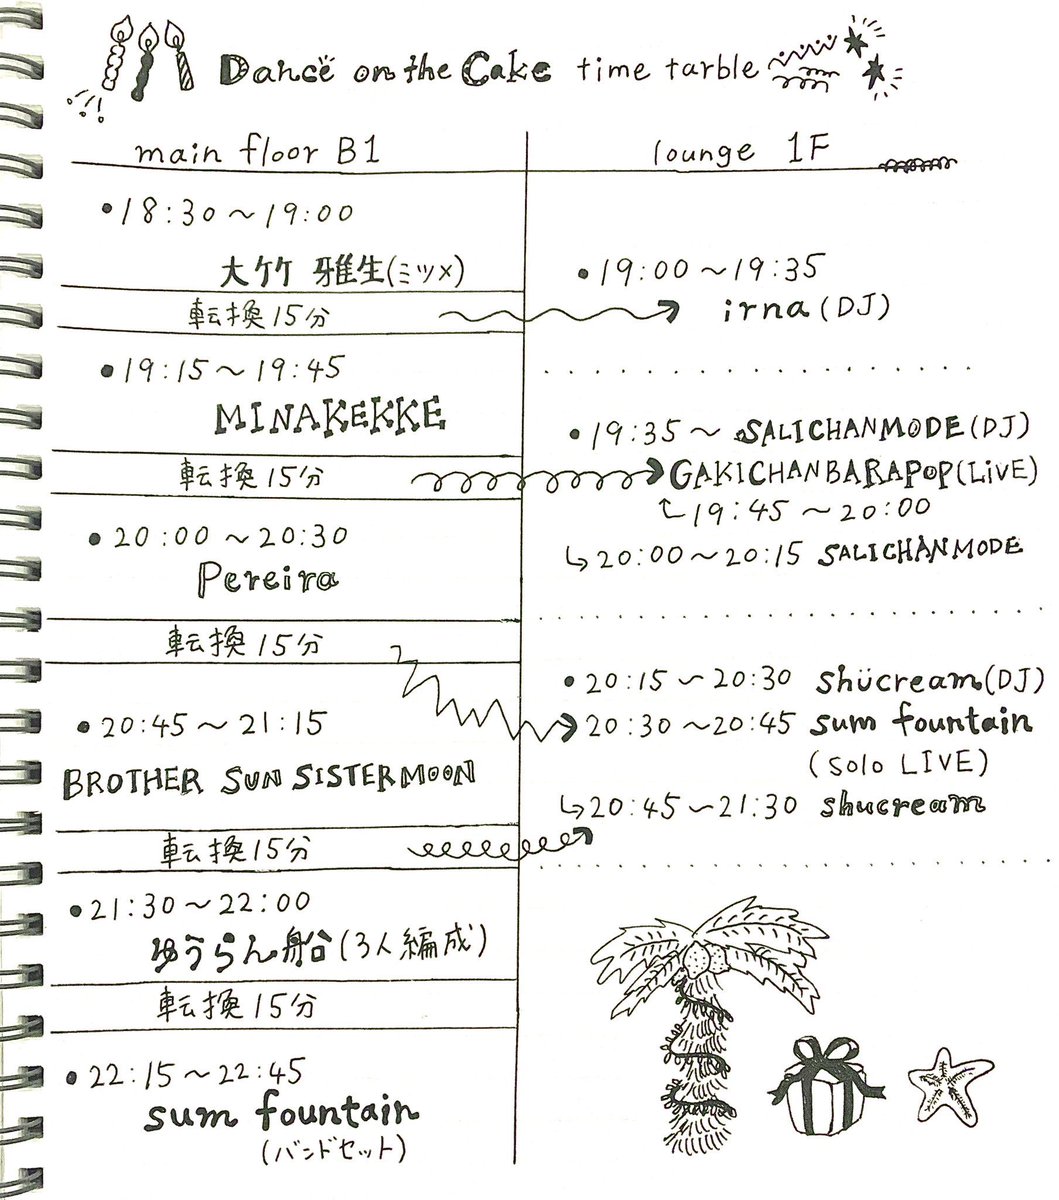 Dance on the Cake time tarble
main floor B1
•18:30〜19:00
大竹 雅生(ミツメ)
転換15分
•19:15〜19:45
MINAKEKKE
転換15分
•20:00〜20:30
Pereira
転換15分
•20:45〜21:15
BROTHER SUN SISTER MOON
転換15分
•21:30〜22:00
ゆうらん船(3人編成)
転換15分
•22:15〜22:45
sum fountain
(バンドセット)
lounge 1F
•19:00〜19:35
irna(DJ)
•19:35〜 SALICHANMODE(DJ)
GAKICHANBARAPOP(LiVE)
19:45〜20:00
↳20:00〜20:15 SALICHANMODE
•20:15〜20:30 shücream(DJ)
20:30〜20:45 sum fountain
(solo LIVE)
↳20:45〜21:30 shucream